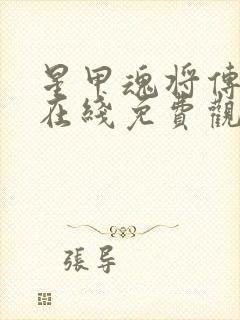 星甲魂将傳
在綫免費觀
張导